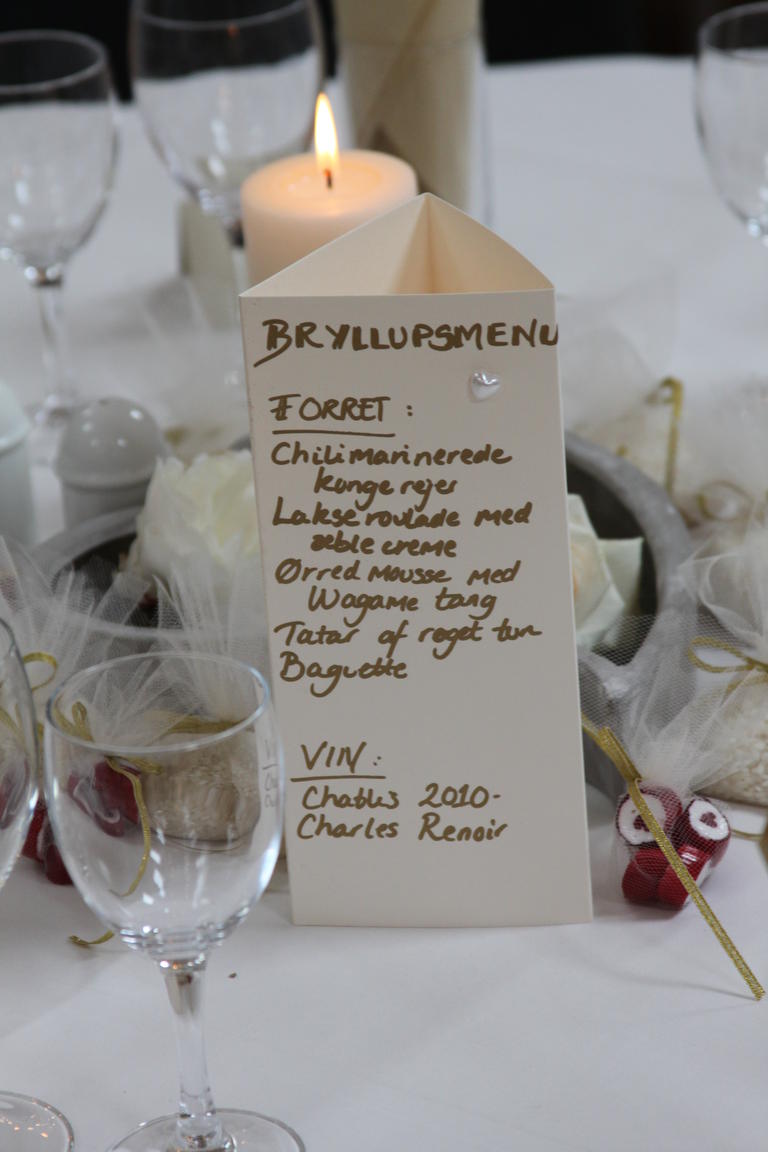 BRYLLUPSMENU
FORRET :
Chilimarinerede
kongerejer
Lakseroulade med
æble creme
Ørred mousse med
Wagame tang
Tatar af røget tun
Baguette
VIN :
Chablis 2010-
Charles Renoir